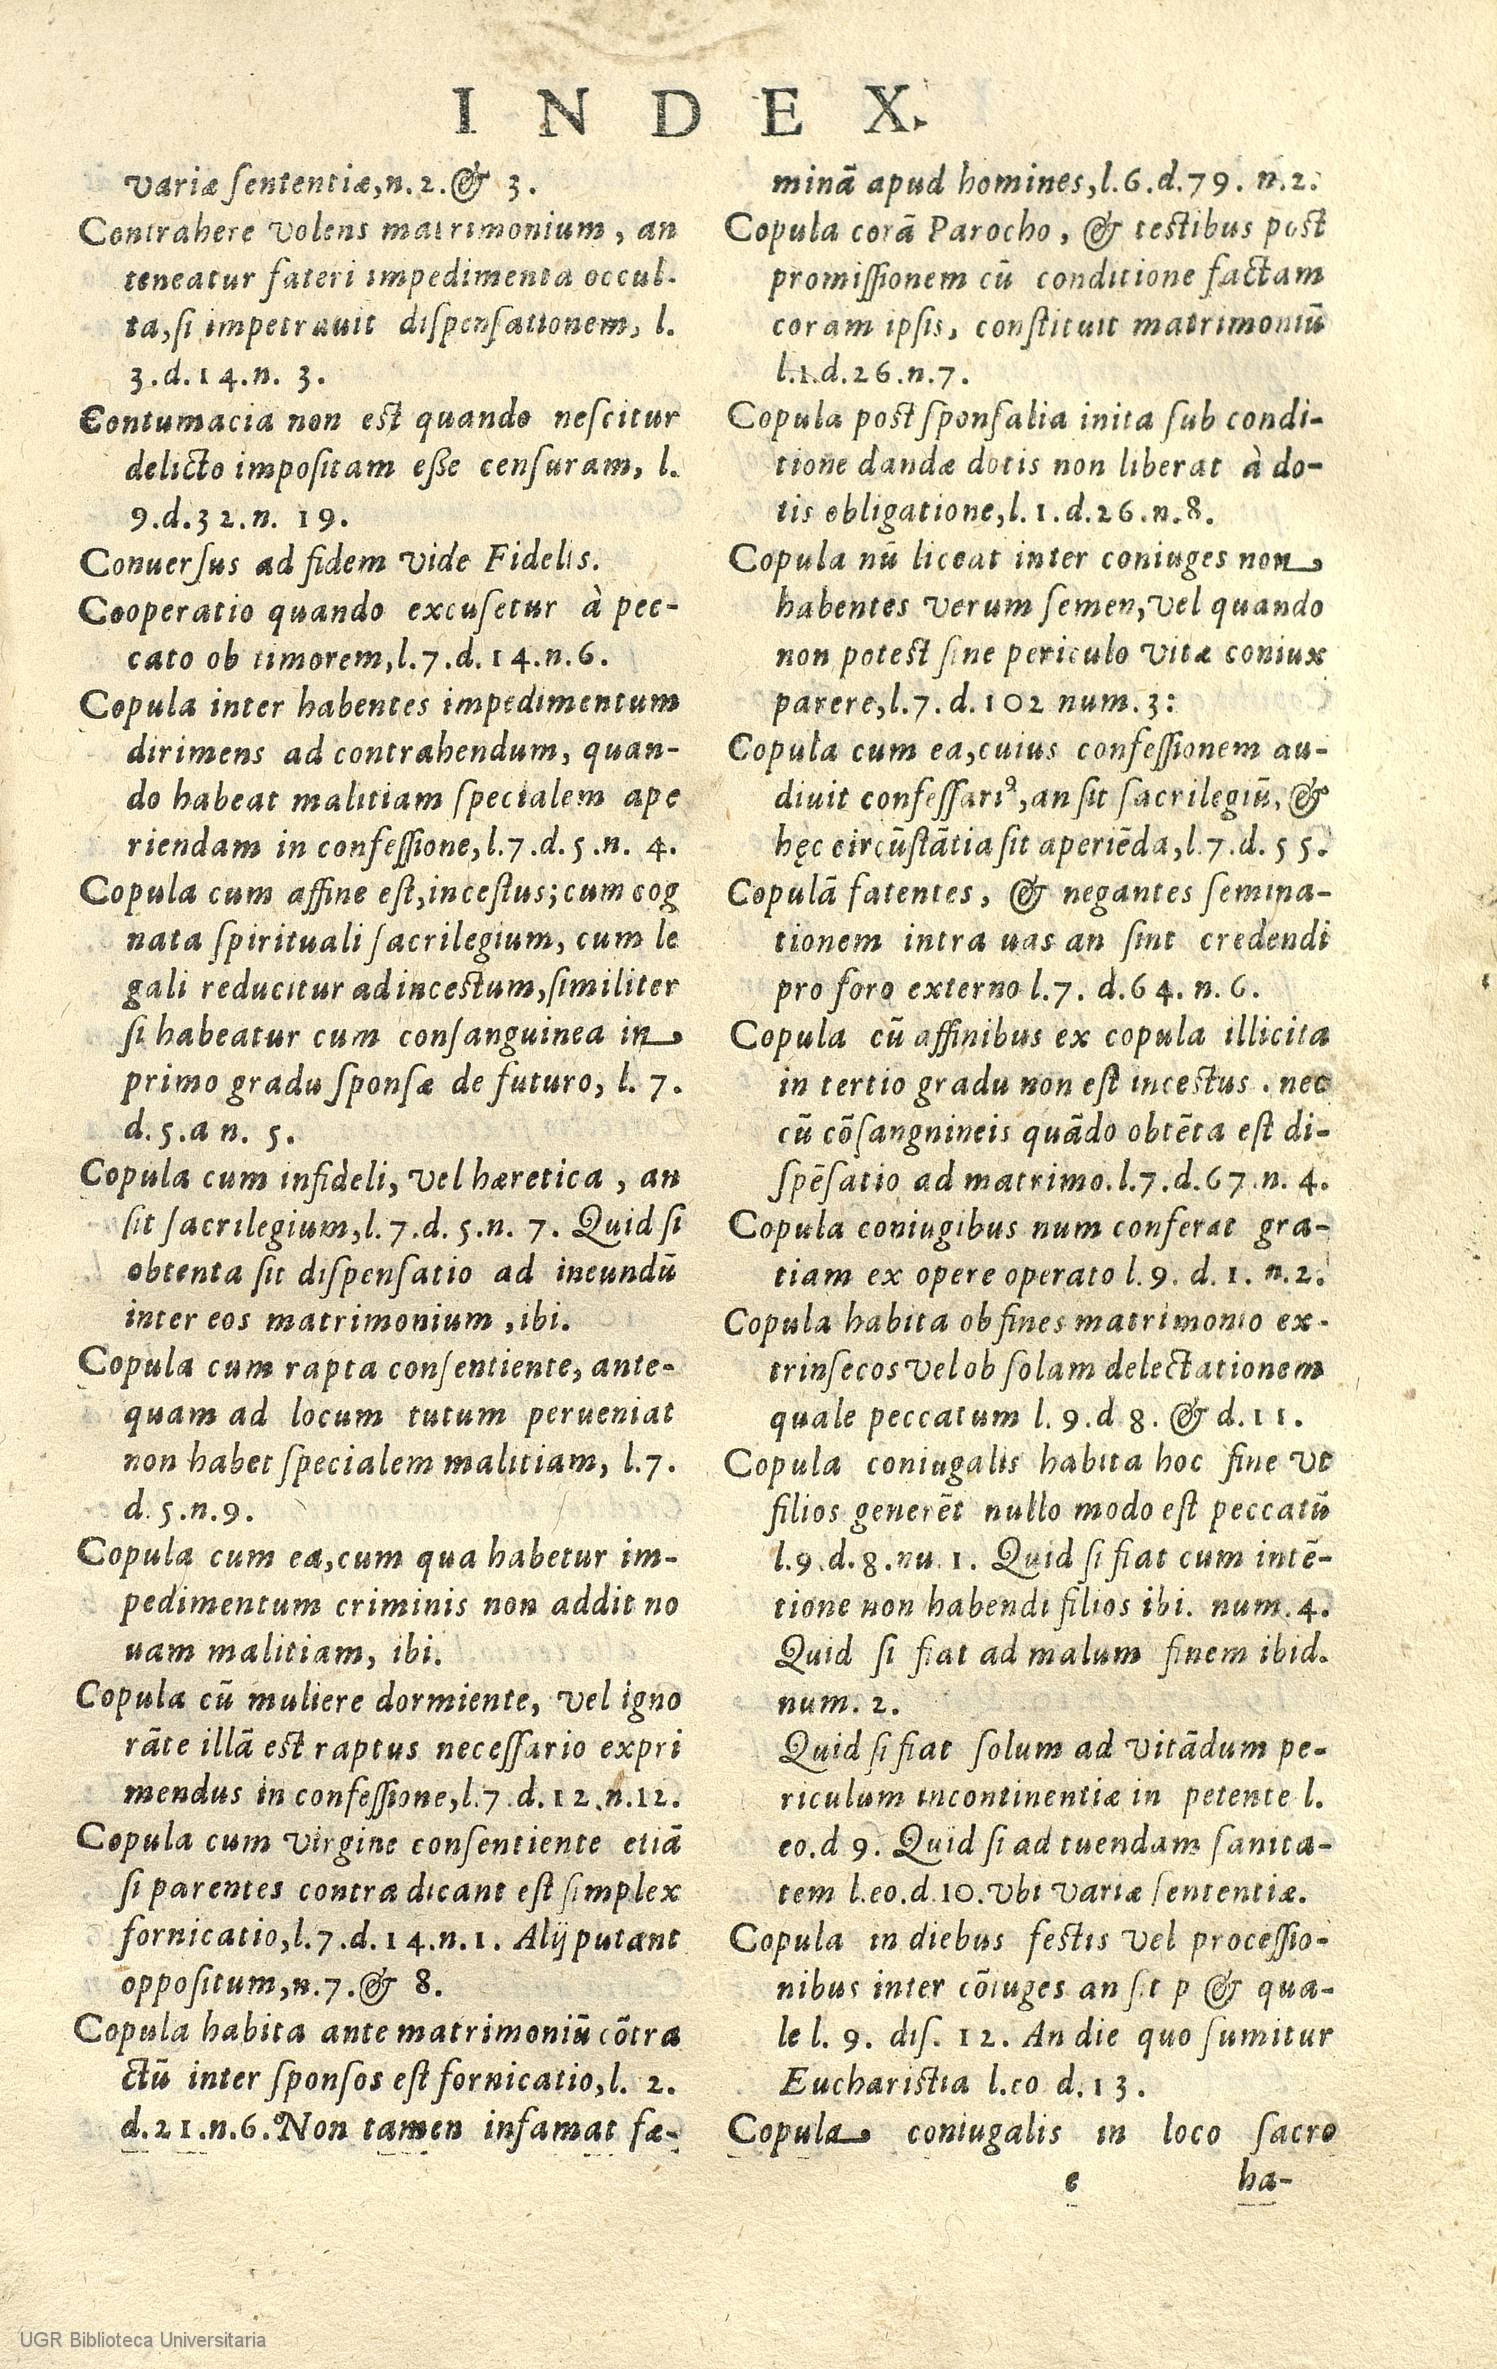 INDEX.
variæ sententiæ,n.2.& 3.
Contrahere volens matrimonium, an
teneatur fateri impedimenta occul-
ta,si impetrauit dispensationem, l.
3.d.14.n. 3.
Contumacia non est quando nescitur
delicto impositam eße censuram, l.
9.d.32.n. 19.
Conuersus ad fidem vide Fidelis.
Cooperatio quando excusetur à pec-
cato ob timorem,l.7.d.14.n.6.
Copula inter habentes impedimentum
dirimens ad contrahendum, quan-
do habeat malitiam specialem ape
riendam in confessione,l.7.d.5.n. 4.
Copula cum affine est,incestus;cum cog
nata spirituali sacrilegium, cum le
gali reducitur ad incestum,similiter
si habeatur cum consanguinea in
primo gradu sponsæ de futuro, l. 7.
d.5.a n. 5.
Copula cum infideli, vel hæretica, an
sit sacrilegium,l.7.d.5.n. 7. Quid si
obtenta sit dispensatio ad ineundū
inter eos matrimonium,ibi.
Copula cum rapta consentiente, ante-
quam ad locum tutum perueniat
non habet specialem malitiam, l.7.
d.5.n.9.
Copula cum ea,cum qua habetur im-
pedimentum criminis non addit no
uam malitiam, ibi.
Copula cū muliere dormiente, vel igno
rāte illā est raptus necessario expri
mendus in confessione,l.7.d.12.n.12.
Copula cum virgine consentiente etiā
si parentes contradicant est simplex
fornicatio,l.7.d.14.n.1. Alij putant
oppositum,n.7.& 8.
Copula habita ante matrimoniū cōtra
ctū inter sponsos est fornicatio,l. 2.
d.21.n.6. Non tamen infamat fæ-
minā apud homines,l.6.d.79. n.2.
Copula corā Parocho, & testibus post
promissionem cū conditione factam
coram ipsis, constituit matrimoniū
l.1.d.26.n.7.
Copula post sponsalia inita sub condi-
tione dandæ dotis non liberat à do-
tis obligatione,l.1.d.26.n.8.
Copula nū liceat inter coniuges non
habentes verum semen,vel quando
non potest sine periculo vitæ coniux
parere,l.7.d.102 num.3:
Copula cum ea,cuius confessionem au-
diuit confessariꝰ,an sit sacrilegiū, &
hęc circūstātia sit aperiēda,l.7.d.55.
Copulā fatentes, & negantes semina-
tionem intra uas an sint credendi
pro foro externo l.7. d.64. n. 6.
Copula cū affinibus ex copula illicita
in tertio gradu non est incestus. nec
cū cōsangnineis quādo obtēta est di-
spēsatio ad matrimo.l.7.d.67.n. 4.
Copula coniugibus num conferat gra-
tiam ex opere operato l.9. d.1. n.2.
Copula habita ob fines matrimonio ex-
trinsecos vel ob solam delectationem
quale peccatum l.9.d 8. & d.11.
Copula coniugalis habita hoc fine vt
filios generēt nullo modo est peccatū
l.9.d.8.nu.1. Quid si fiat cum intē-
tione non habendi filios ibi. num.4.
Quid si fiat ad malum finem ibid.
num. 2.
Quid si fiat solum ad vitādum pe-
riculum incontinentiæ in petente l.
eo.d 9. Quid si ad tuendam sanita-
tem l.eo.d.10.vbi variæ sententiæ.
Copula in diebus festis vel processio-
nibus inter cōiuges an sit p & qua-
le l. 9. dis. 12. An die quo sumitur
Eucharistia l.eo d.13.
Copula coniugalis in loco sacro
e ha-
UGR Biblioteca Universitaria